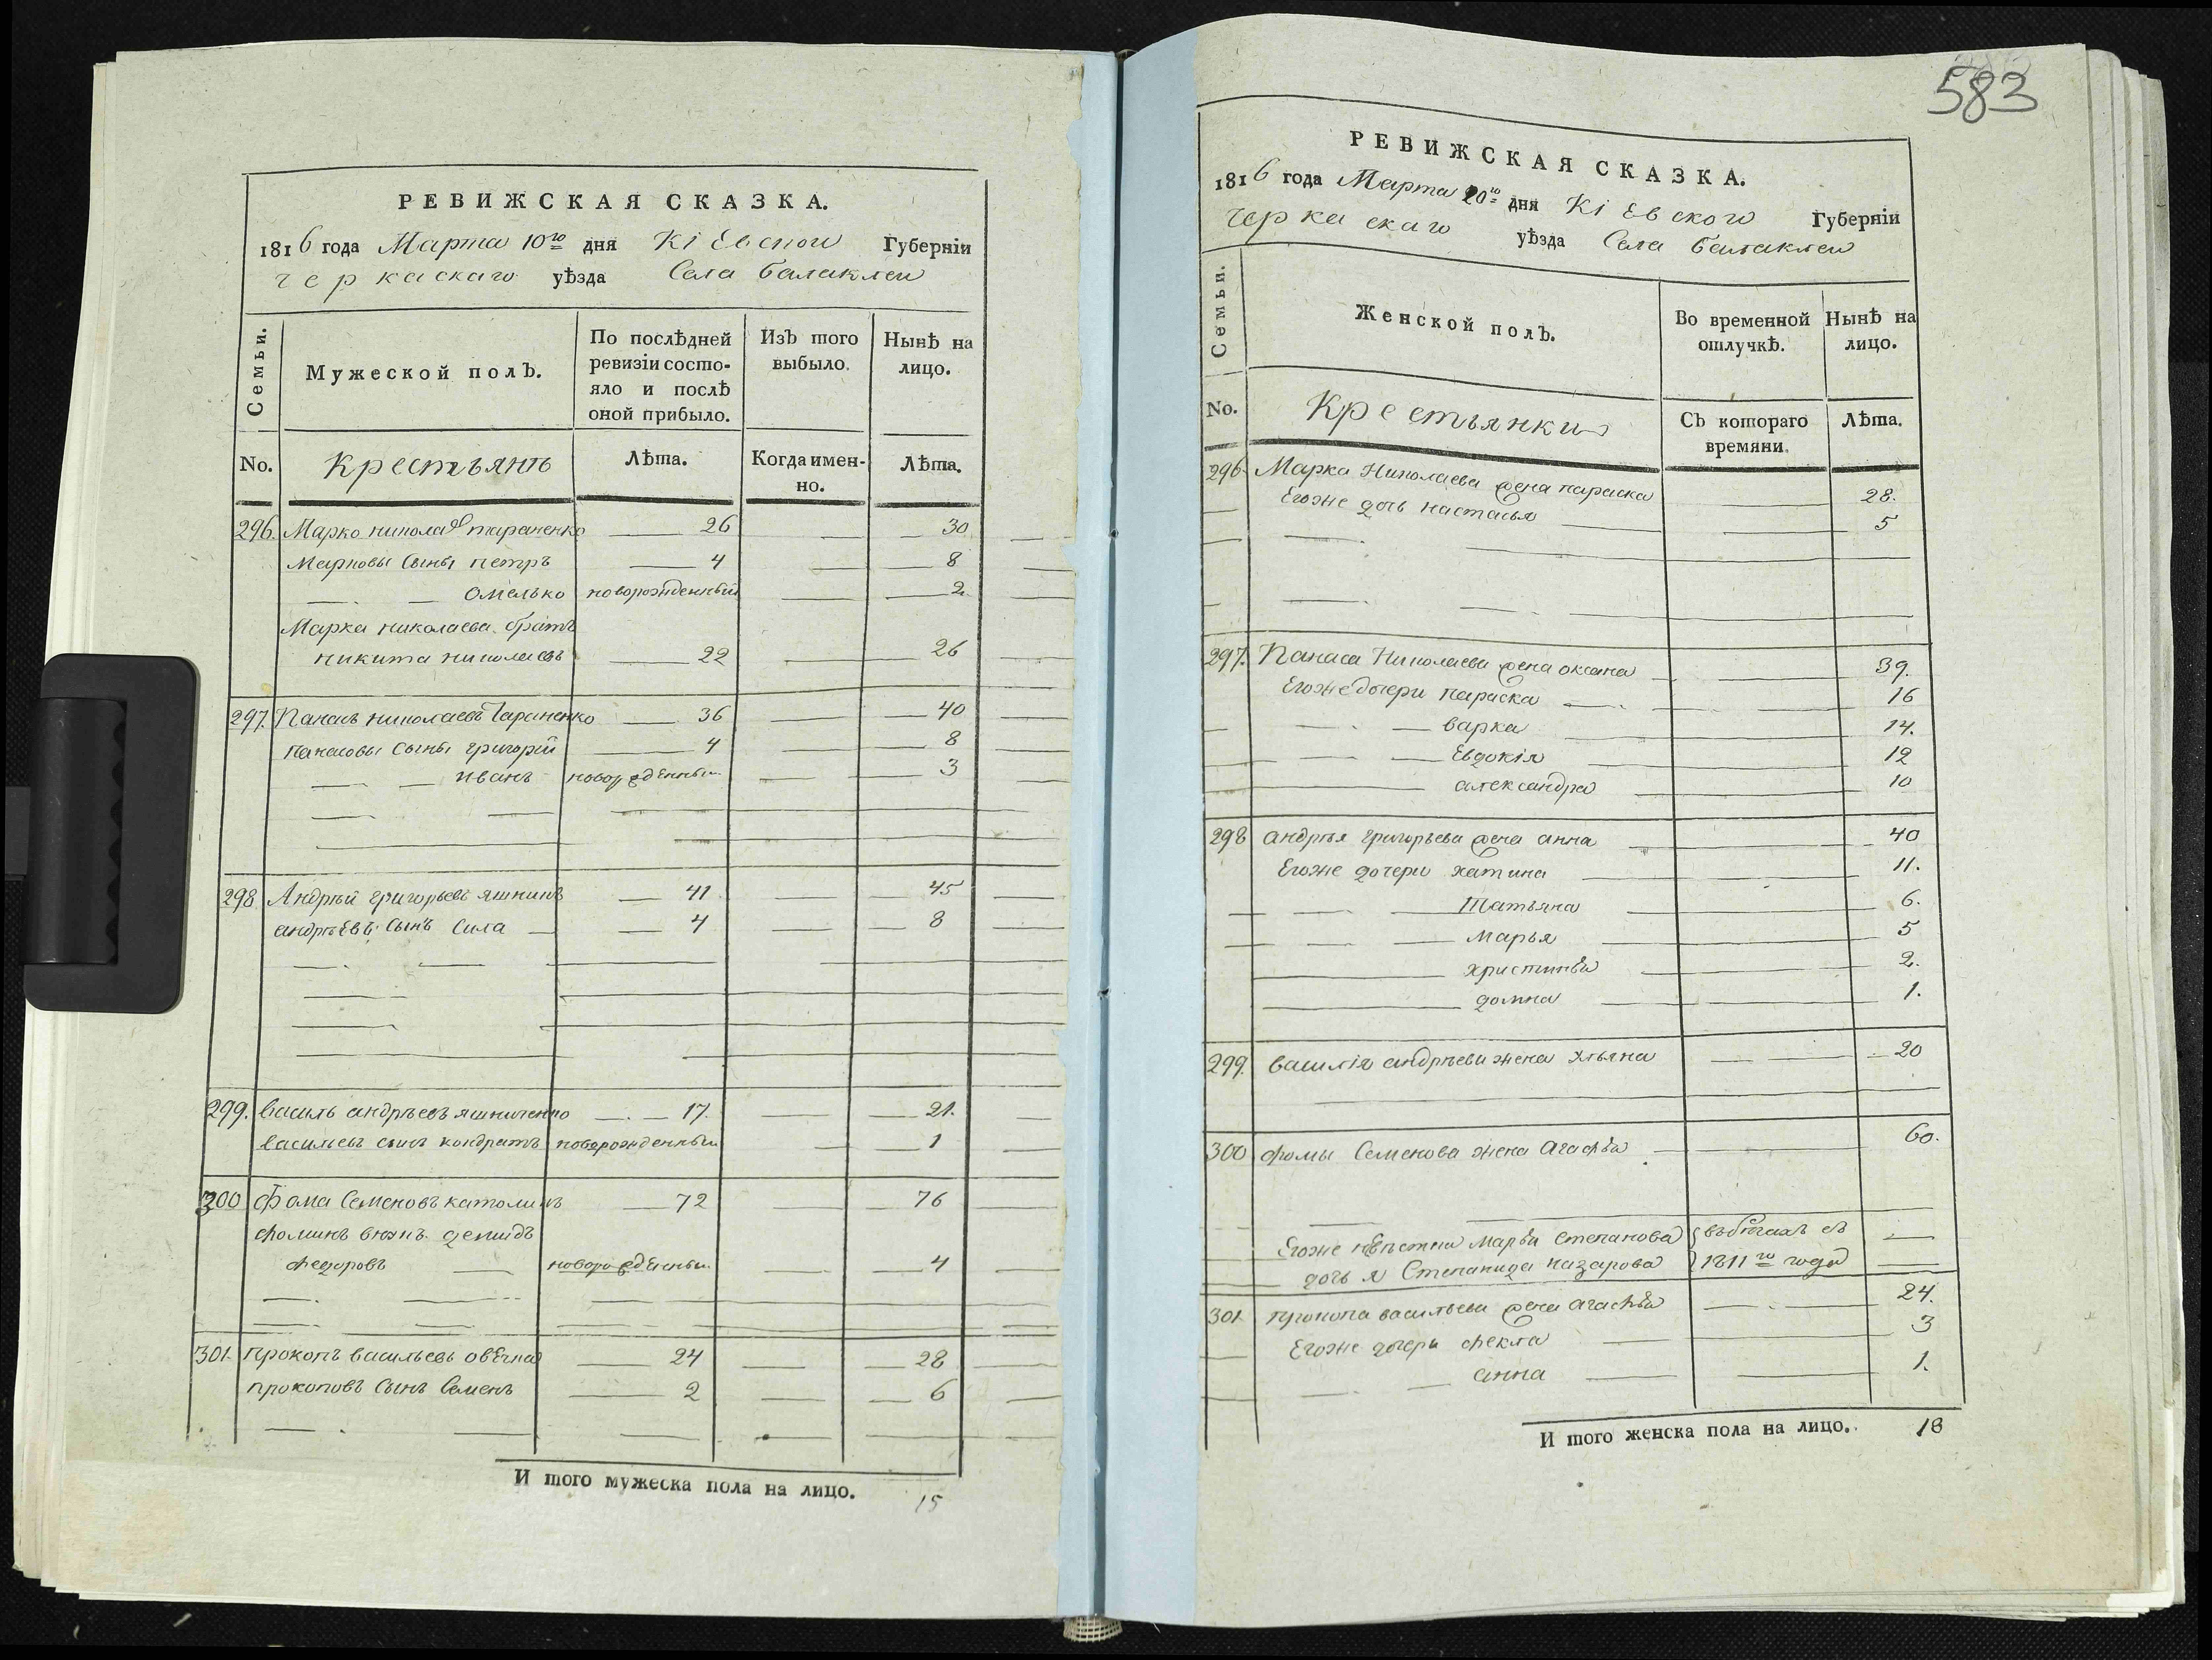 РЕВИЖСКАЯ СКАЗКА.
1816 года Марта 10го дня Кіевской Губерніи
черкаскаго уѣзда Села балаклеи
Семьи.
Мужеской полъ.
По послѣдней
ревизіи состо-
яло и послѣ
оной прибыло.
Изъ того
выбыло.
Нынѣ на
лицо.
No.
Крестьянъ
Лѣта.
Когда имен-
но.
Лѣта.
296. Марко николаев тараненко 26 30
Марковы сыны петръ 4 8
Омелько новорожденный 2
Марка николаева братъ
никита николаевъ 22 26
297. Панасъ николаевъ Тараненко 36 40
панасовы сыны григорій 4 8
иванъ новорожденный 3
298. Андрѣй григорьевъ яшникъ 41 45
андрѣевъ сынъ Сила 4 8
299. василь андрѣевъ яшниченко 17. 21.
васильевъ сынъ кондратъ новорожденный 1
300 Фома Семеновъ 72 76
фоминъ внукъ демидъ
федоровъ новорожденный 4
301. прокопъ васильевъ 24 28
прокоповъ сынъ Семенъ 2 6
И того мужеска пола на лицо. 15
583
РЕВИЖСКАЯ СКАЗКА.
1816 года Марта 10го дня Кіевского Губерніи
черкаскаго уѣзда Села балаклеи
Семьи.
Женской полъ.
Во временной
отлучкѣ.
Нынѣ на
лицо.
No.
Крестьянки
Съ котораго
времяни.
Лѣта.
296. Марка Николаева жена параска 28.
Егоже дочь настасья 5
297. Панаса Николаева жена оксана 39.
Егоже дочери параска 16
варка 14.
Евдокія 12
александра 10
298 андрѣя григорьева жена анна 40
Егоже дочери 11.
Татьяна 6.
марья 5
христинья 2.
домна 1.
299. василія андрѣева жена ульяна 20
300 фомы Семенова жена Агафья 60.
Егоже невѣстка Марья степанова въбѣгахъ съ
дочь я Степанида назарова 1811го года
301. прокопа васильева жена агафья 24.
Егоже дочери фекла 3
анна 1.
И того женска пола на лицо. 18